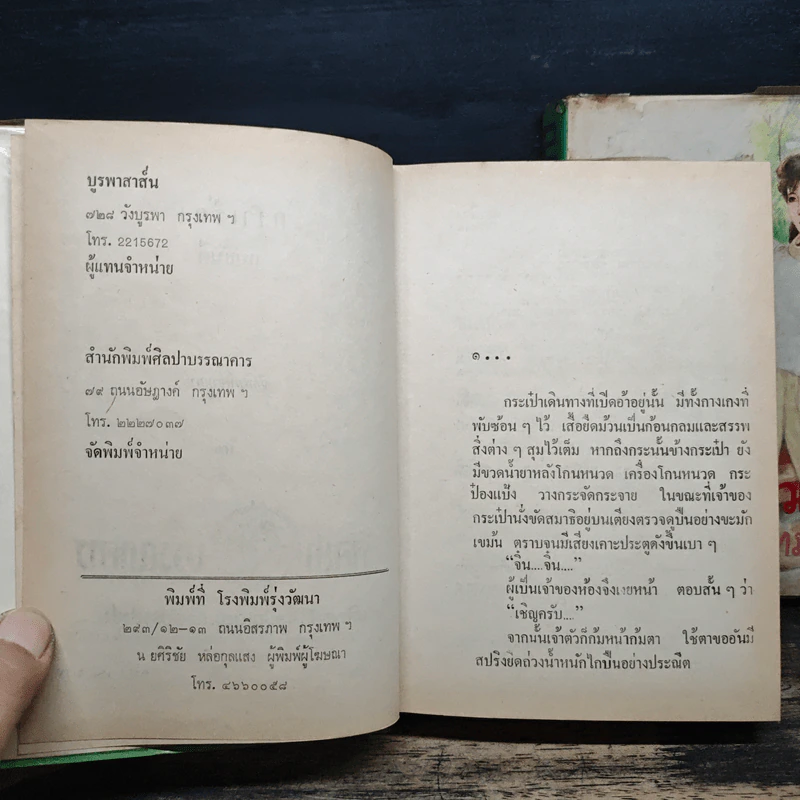 บูรพาสาส์น
๗๒๘ วังบูรพา กรุงเทพ ฯ
โทร. 2215672
ผู้แทนจำหน่าย
สำนักพิมพ์ศิลปาบรรณาคาร
๗๙ ถนนอัษฎางค์ กรุงเทพ ฯ
โทร. ๒๒๒๗๐๓๗
จัดพิมพ์จำหน่าย
พิมพ์ที่ โรงพิมพ์รุ่งวัฒนา
๒๙๓/๑๒-๑๓ ถนนอิสรภาพ กรุงเทพ ฯ
น ยศิริชัย หล่อกุลแสง ผู้พิมพ์ผู้โฆษณา
โทร. ๔๖๖๐๐๕๘
๑...
กระเป๋าเดินทางที่เปิดอ้าอยู่นั้น มีทั้งกางเกงที่
พับซ้อน ๆ ไว้ เสื้อยืดม้วนเป็นก้อนกลมและสรรพ
สิ่งต่าง ๆ สุมไว้เต็ม หากถึงกระนั้นข้างกระเป๋า ยัง
มีขวดน้ำยาหลังโกนหนวด เครื่องโกนหนวด กระ
ป๋องแป้ง วางกระจัดกระจาย ในขณะที่เจ้าของ
กระเป๋านั่งขัดสมาธิอยู่บนเตียงตรวจดูปืนอย่างขะมัก
เขม้น ตราบจนมีเสียงเคาะประตูดังขึ้นเบา ๆ
“จิ้น....จิ้น....”
ผู้เป็นเจ้าของห้องจึงเงยหน้า ตอบสั้น ๆ ว่า
“เชิญครับ....”
จากนั้นเจ้าตัวก็ก้มหน้าก้มตา ใช้ตาขออันมี
สปริงยืดถ่วงน้ำหนักไกปืนอย่างประณีต